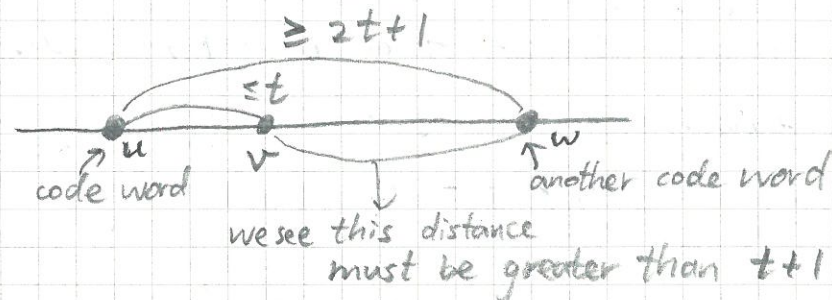 ≥ 2t+1
≤t
u
v
w
code word
another code word
we see this distance
must be greater than t+1